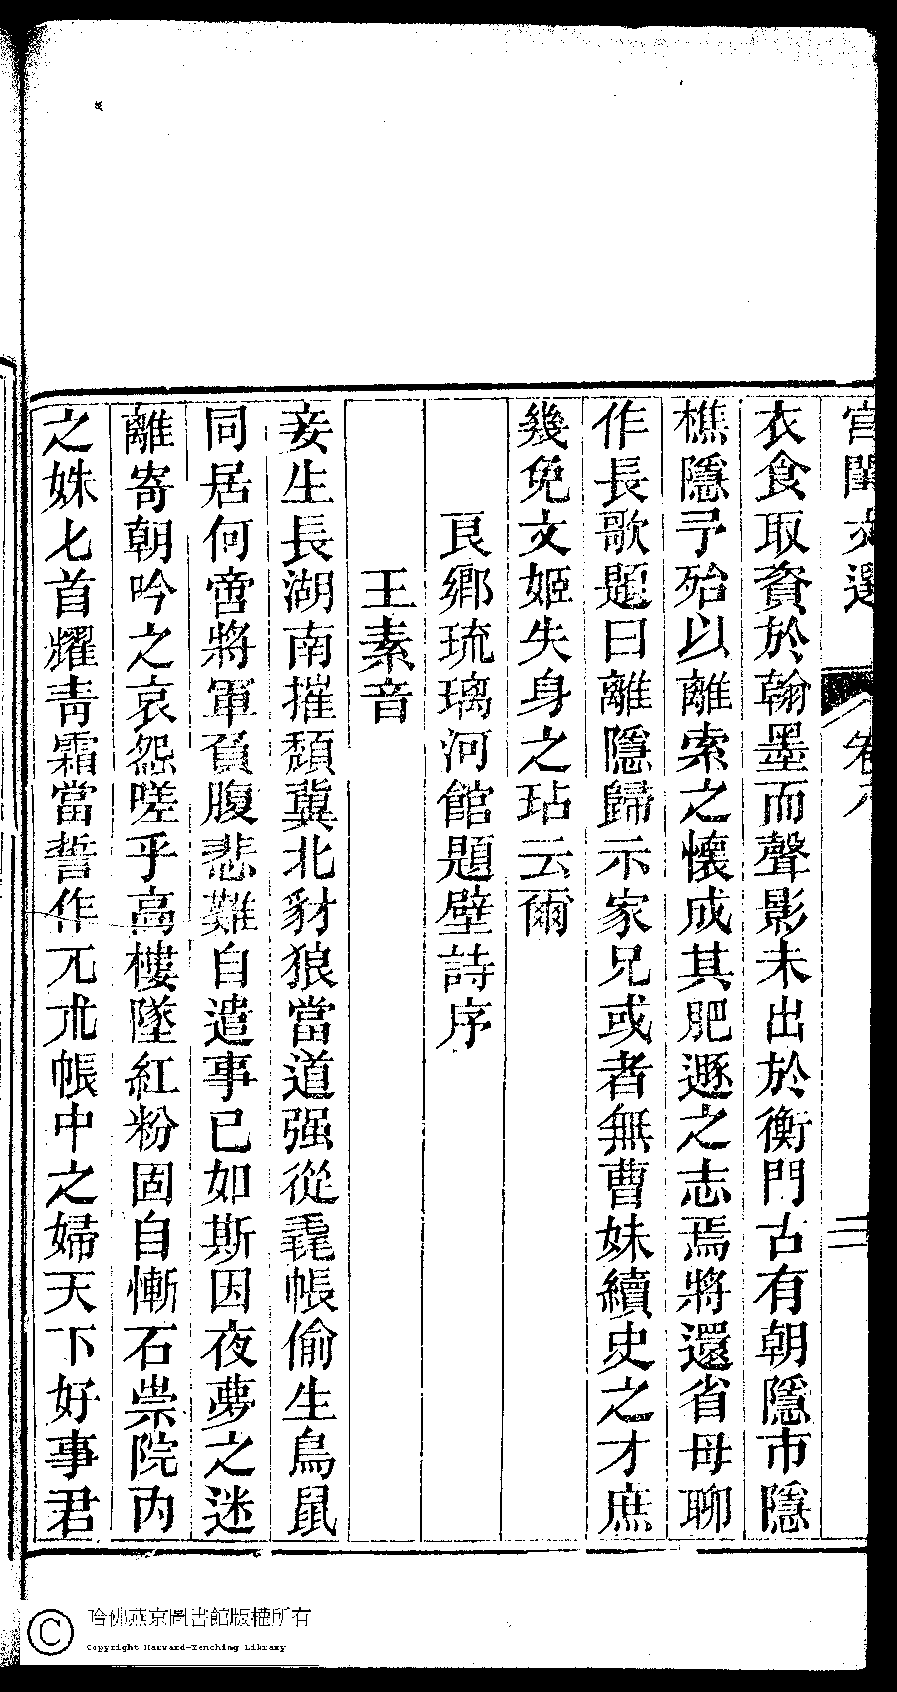 宮閨文選 卷八 二
衣食取資於翰墨而聲影未出於衡門古有朝隱市隱
樵隱予殆以離索之懷成其肥遯之志焉將還省母聊
作長歌題曰離隱歸示家兄或者無曹妹續史之才庶
幾免文姬失身之玷云爾
良鄉琉璃河館題壁詩序
王素音
妾生長湖南摧頹冀北豺狼當道强從毳帳偷生鳥鼠
同居何啻將軍負腹悲難自遣事已如斯因夜夢之迷
離寄朝吟之哀怨嗟乎高樓墜紅粉固自慚石崇院內
之姝匕首耀靑霜當誓作兀朮帳中之婦天下好事君
哈佛燕京圖書館版權所有
Copyright Harvard-Yenching Library